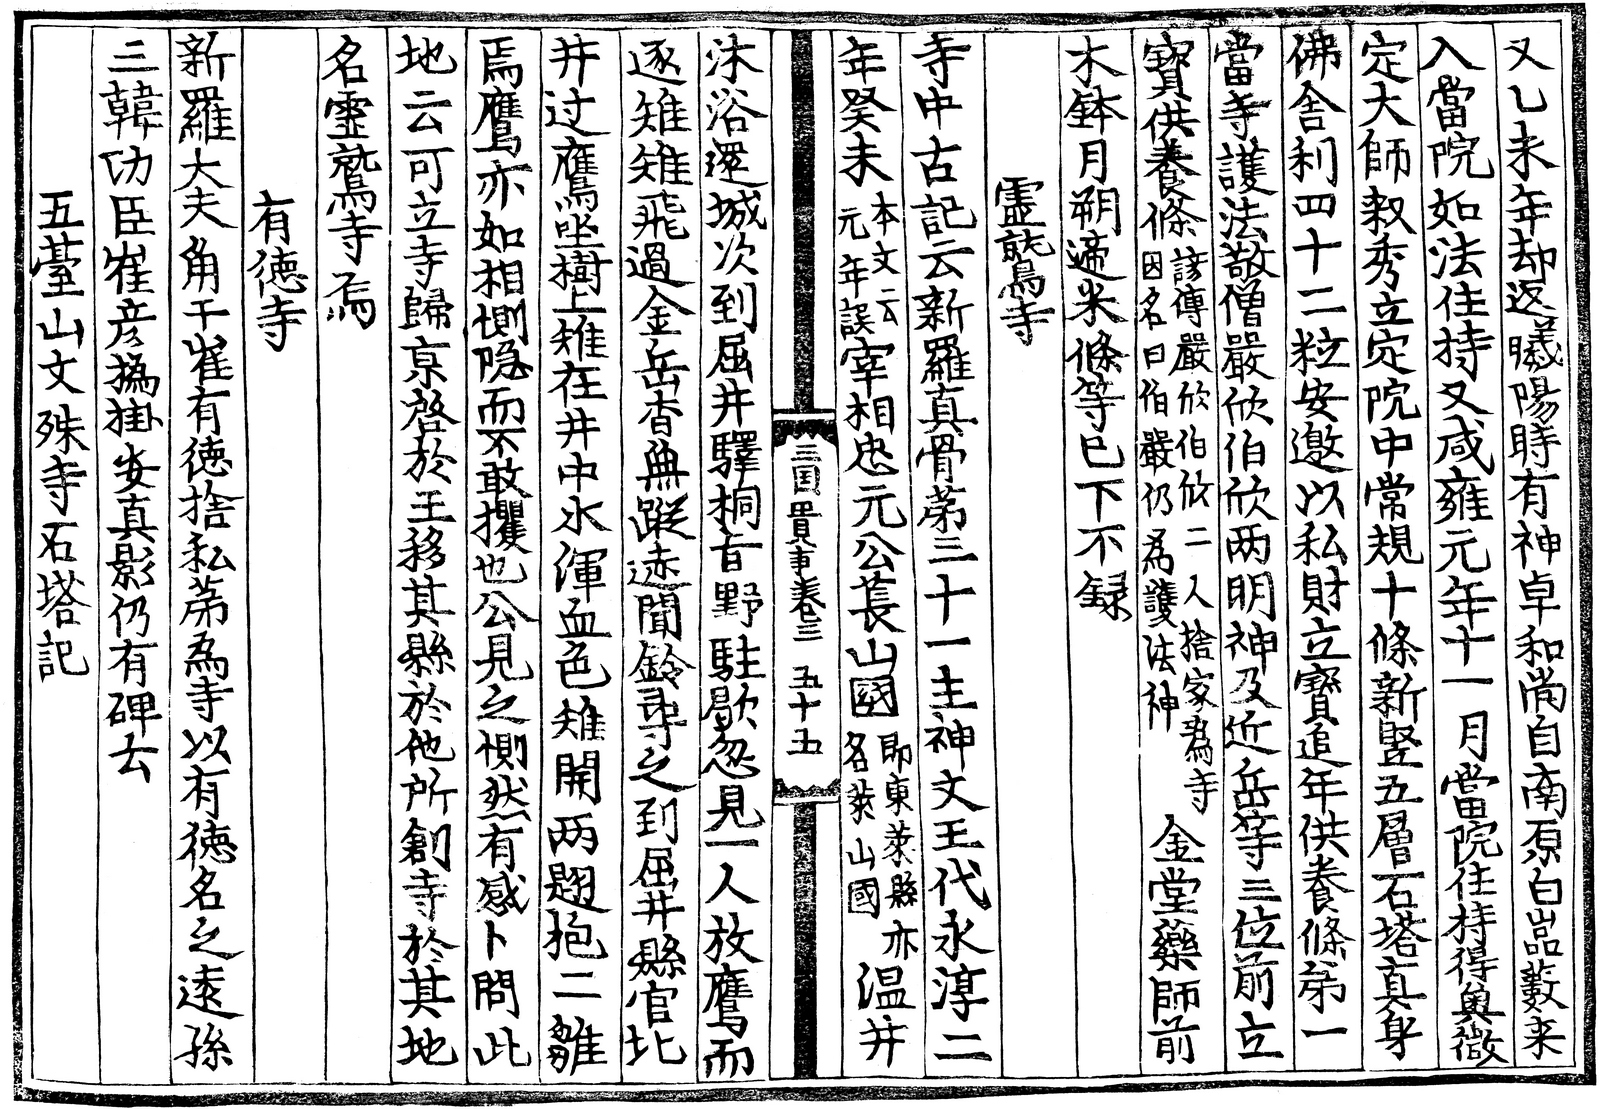 又乙未年却返曦陽時有神卓和尚自南原白嵓藪来
入當院如法住持又咸雍元年十一月當院住持得奧微
定大師釈秀立定院中常規十條新竪五層石塔真身
佛舍利四十二粒安邀以私財立寳追年供養條弟一
當寺護法敬僧嚴欣伯欣两明神及近岳等三位前立
寳供養條諺傳嚴欣伯欣二人捨家為寺因名曰伯嚴仍為護法神金堂藥師前
木鉢月朔遞米條等已下不録
靈鷲寺
寺中古記云新羅真骨苐三十一主神文王代永淳二
年癸未本文云元年誤宰相忠元公萇山國即東萊縣亦名萊山國温井
沐浴還城次到屈井驛桐旨野駐歇忽見一人放鷹而
逐雉雉飛過金岳杳無蹤迹聞鈴尋之到屈井縣官北
井过鷹坐樹上雉在井中水渾血色雉開两翅抱二雛
焉鷹亦如相惻隐而不敢攫也公見之惻然有感卜問此
地云可立寺歸京啓於王移其縣於他所創寺於其地
名靈鷲寺焉
有徳寺
新羅大夫角干崔有徳捨私苐為寺以有徳名之遠孫
三韓功臣崔彦撝掛安真影仍有碑云
五臺山文殊寺石塔記
三国 卷三 五十五